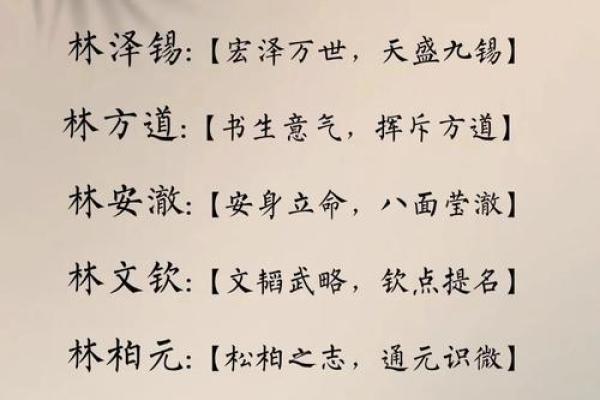 林泽锡:【宏泽万世，天盛九锡】
林方道:【书生意气，挥斥方道】
林安澈:【安身立命，八面莹澈】
林文钦:【文韬武略，钦点提名】
林柏元:【松柏之志，通元识微】